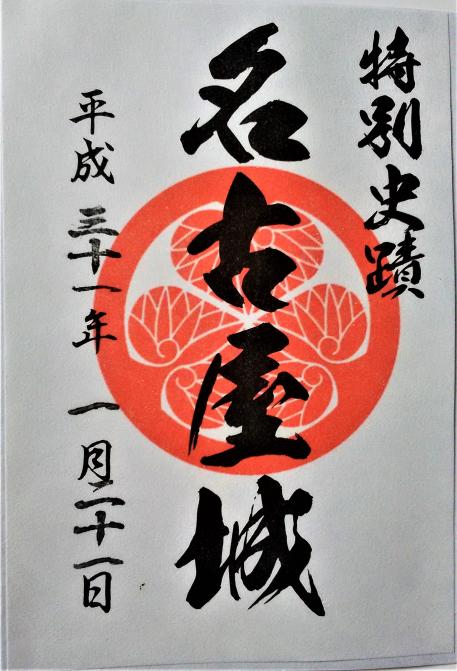 特別史蹟
名古屋城
平成三十一年 一月二十一日